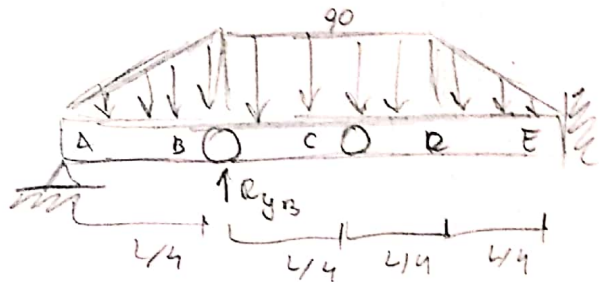 90
A B C D E
RyB
L/4 L/4 L/4 L/4